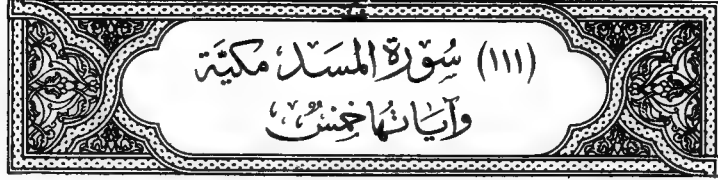 (١١١) سُورَةُ المَسَد مَكيَّة
وَآيَاتُهَا خَمْسٌ